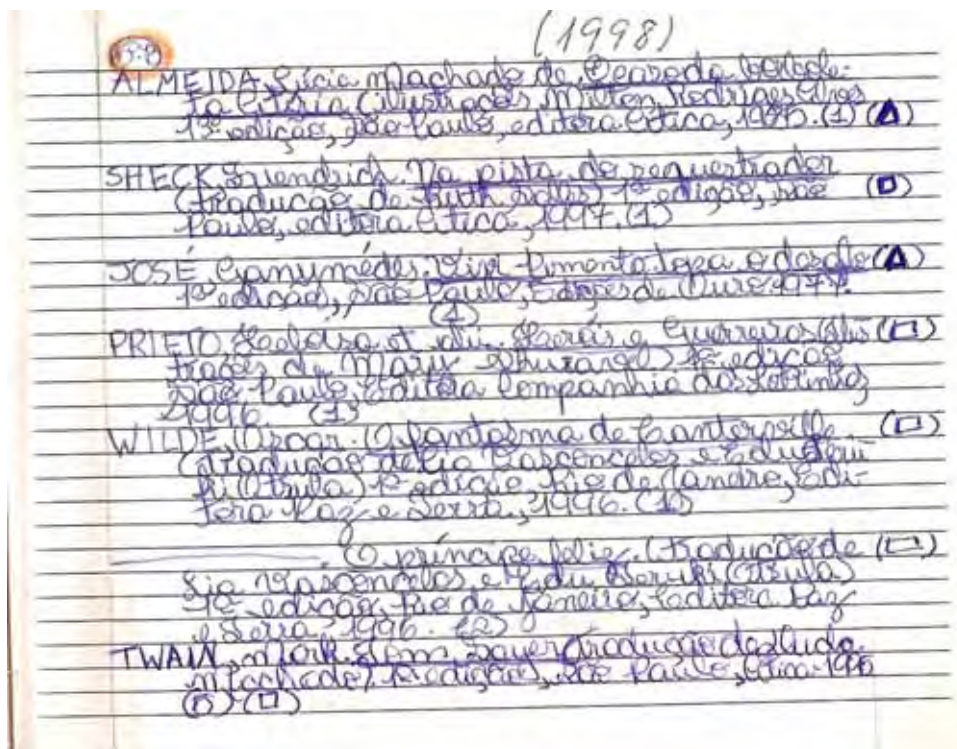 (1998)
ALMEIDA, Lúcia Machado de. O caso da borbole-
ta Atíria (ilustrações Milton Rodrigues Alves
1ª edição, São Paulo, editora Ática, 1975. (1)
SHECK, Friendrich. Na pista do sequestrador
(tradução de Ruth Salles) 1ª edição, São
Paulo, editora Ática, 1997. (1)
JOSÉ, Ganymédes. Vivi Pimenta topa o desafio
1ª edição, São Paulo, Edições de Ouro 1977.
(1)
PRIETO, Heloisa et alii. Heróis e Guerreiros (ilus
trações de Maria) 1ª edição
São Paulo, Editora Companhia das Letrinhas
1996. (1)
WILDE, Oscar. O fantasma de Canterville.
(tradução de Lia Vasconcelos e Edu
(Átsula) 1ª edição Rio de Janeiro, Edi-
tora Paz e Terra, 1996. (1)
O príncipe feliz. (tradução de
Lia Vasconcelos e Edu Teruki (Átsula)
1ª edição, Rio de Janeiro, Editora Paz
e Terra, 1996. (2)
TWAIN, Mark. Tom Sayer (tradução de
Machado) 1ª edição, São Paulo, Ática 1996